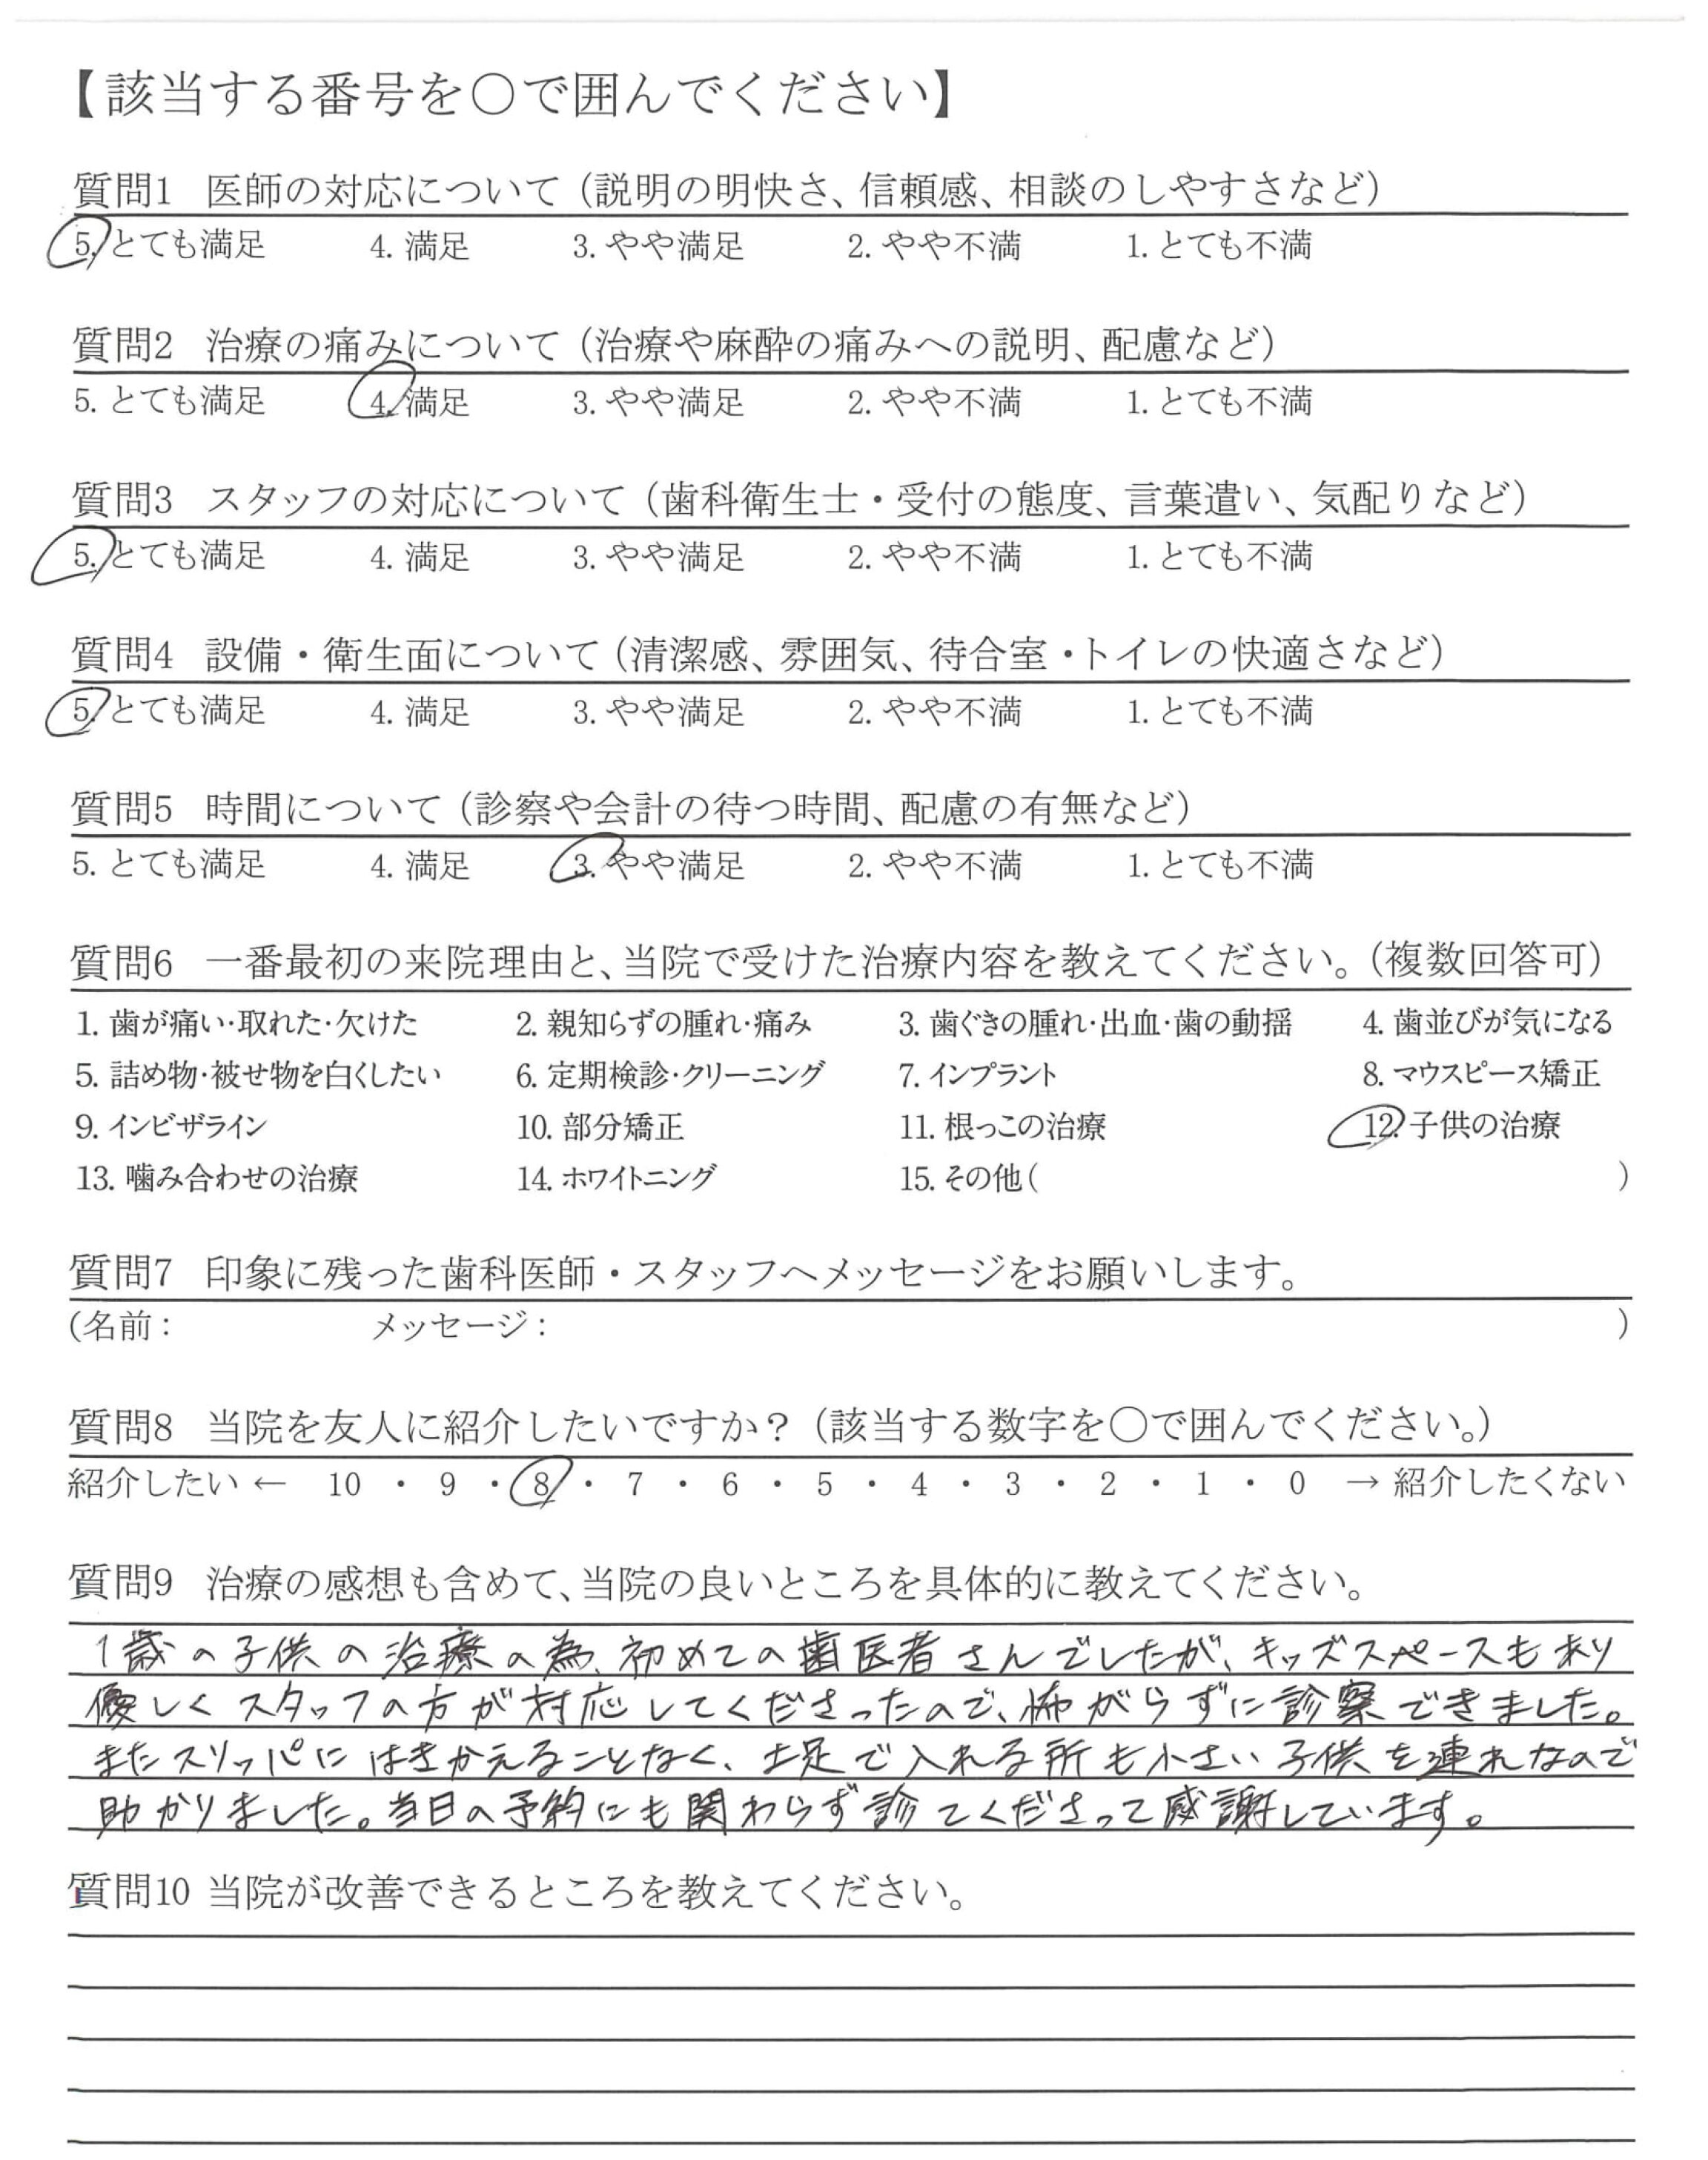 【該当する番号を○で囲んでください】
質問1 医師の対応について（説明の明快さ、信頼感、相談のしやすさなど）
5. とても満足 4. 満足 3. やや満足 2. やや不満 1. とても不満
質問2 治療の痛みについて（治療や麻酔の痛みへの説明、配慮など）
5. とても満足 4. 満足 3. やや満足 2. やや不満 1. とても不満
質問3 スタッフの対応について（歯科衛生士・受付の態度、言葉遣い、気配りなど）
5. とても満足 4. 満足 3. やや満足 2. やや不満 1. とても不満
質問4 設備・衛生面について（清潔感、雰囲気、待合室・トイレの快適さなど）
5. とても満足 4. 満足 3. やや満足 2. やや不満 1. とても不満
質問5 時間について（診察や会計の待つ時間、配慮の有無など）
5. とても満足 4. 満足 3. やや満足 2. やや不満 1. とても不満
質問6 一番最初の来院理由と、当院で受けた治療内容を教えてください。（複数回答可）
1. 歯が痛い・取れた・欠けた 2. 親知らずの腫れ・痛み 3. 歯ぐきの腫れ・出血・歯の動揺 4. 歯並びが気になる
5. 詰め物・被せ物を白くしたい 6. 定期検診・クリーニング 7. インプラント 8. マウスピース矯正
9. インビザライン 10. 部分矯正 11. 根っこの治療 12. 子供の治療
13. 噛み合わせの治療 14. ホワイトニング 15. その他（ ）
質問7 印象に残った歯科医師・スタッフへメッセージをお願いします。
（名前： メッセージ： ）
質問8 当院を友人に紹介したいですか？（該当する数字を○で囲んでください。）
紹介したい ← 10 ・ 9 ・ 8 ・ 7 ・ 6 ・ 5 ・ 4 ・ 3 ・ 2 ・ 1 ・ 0 → 紹介したくない
質問9 治療の感想も含めて、当院の良いところを具体的に教えてください。
1歳の子供の治療の為、初めての歯医者さんでしたが、キッズスペースもあり
優しくスタッフの方が対応してくださったので、怖がらずに診察できました。
またスリッパにはきかえることなく、土足で入れる所も小さい子供を連れなので
助かりました。当日の予約にも関わらず診てくださって感謝しています。
質問10 当院が改善できるところを教えてください。